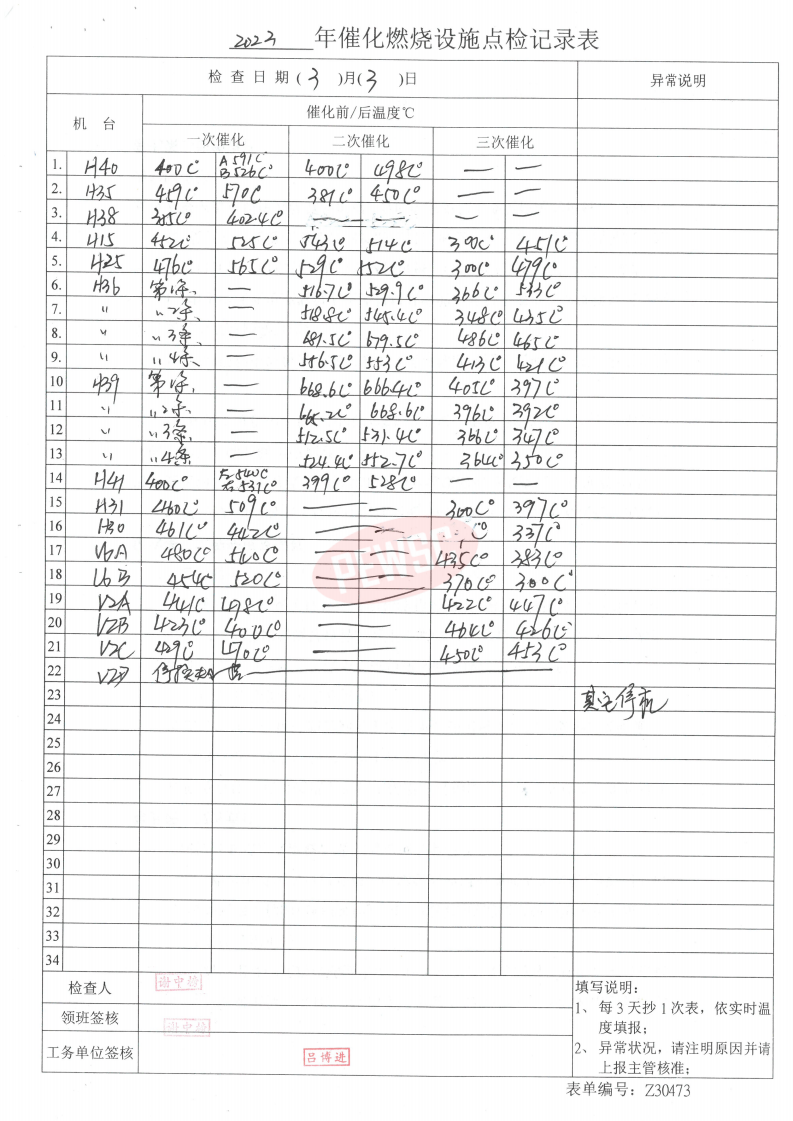 2023 年催化燃烧设施点检记录表
检查日期(3)月(3)日 异常说明
机台 催化前/后温度℃
一次催化 二次催化 三次催化
1. H40 400C° A 591C° B 526C° 400C° 498C° — —
2. H35 459C° 570C° 381C° 450C° — —
3. H38 355C° 402.4C° — — — —
4. H15 452C° 525C° 543C° 514C° 300C° 451C°
5. H25 476C° 565C° 529C° 552C° 300C° 479C°
6. H36 第1条、 — 516.7C° 529.9C° 366C° 533C°
7. 〃 〃2条、 — 518.8C° 545.4C° 348C° 435C°
8. 〃 〃3条、 — 681.5C° 679.5C° 486C° 465C°
9. 〃 〃4条、 — 556.5C° 553C° 413C° 421C°
10 H39 第1条、 — 668.6C° 666.4C° 405C° 397C°
11 〃 〃2条、 — 665.2C° 668.6C° 396C° 392C°
12 〃 〃3条 — 512.5C° 531.4C° 366C° 347C°
13 〃 〃4条 — 524.4C° 552.7C° 364C° 350C°
14 H41 400C° 左540C° 右531C° 399C° 528C° — —
15 H31 460C° 509C° — — 300C° 397C°
16 H30 461C° 442C° — — C° 337C°
17 V6A 480C° 540C° — 435C° 383C°
18 V6B 454C° 520C° — 370C° 300C°
19 V2A 441C° 498C° — 422C° 447C°
20 V2B 423C° 400C° — 464C° 426C°
21 V2C 429C° 470C° — 450C° 453C°
22 V2D 停
23 其它停机
24
25
26
27
28
29
30
31
32
33
34
PEWS
检查人 谢中俭
领班签核 谢中俭
工务单位签核 吕博进
填写说明：
1、每3天抄1次表，依实时温
度填报；
2、异常状况，请注明原因并请
上报主管核准；
表单编号：Z30473